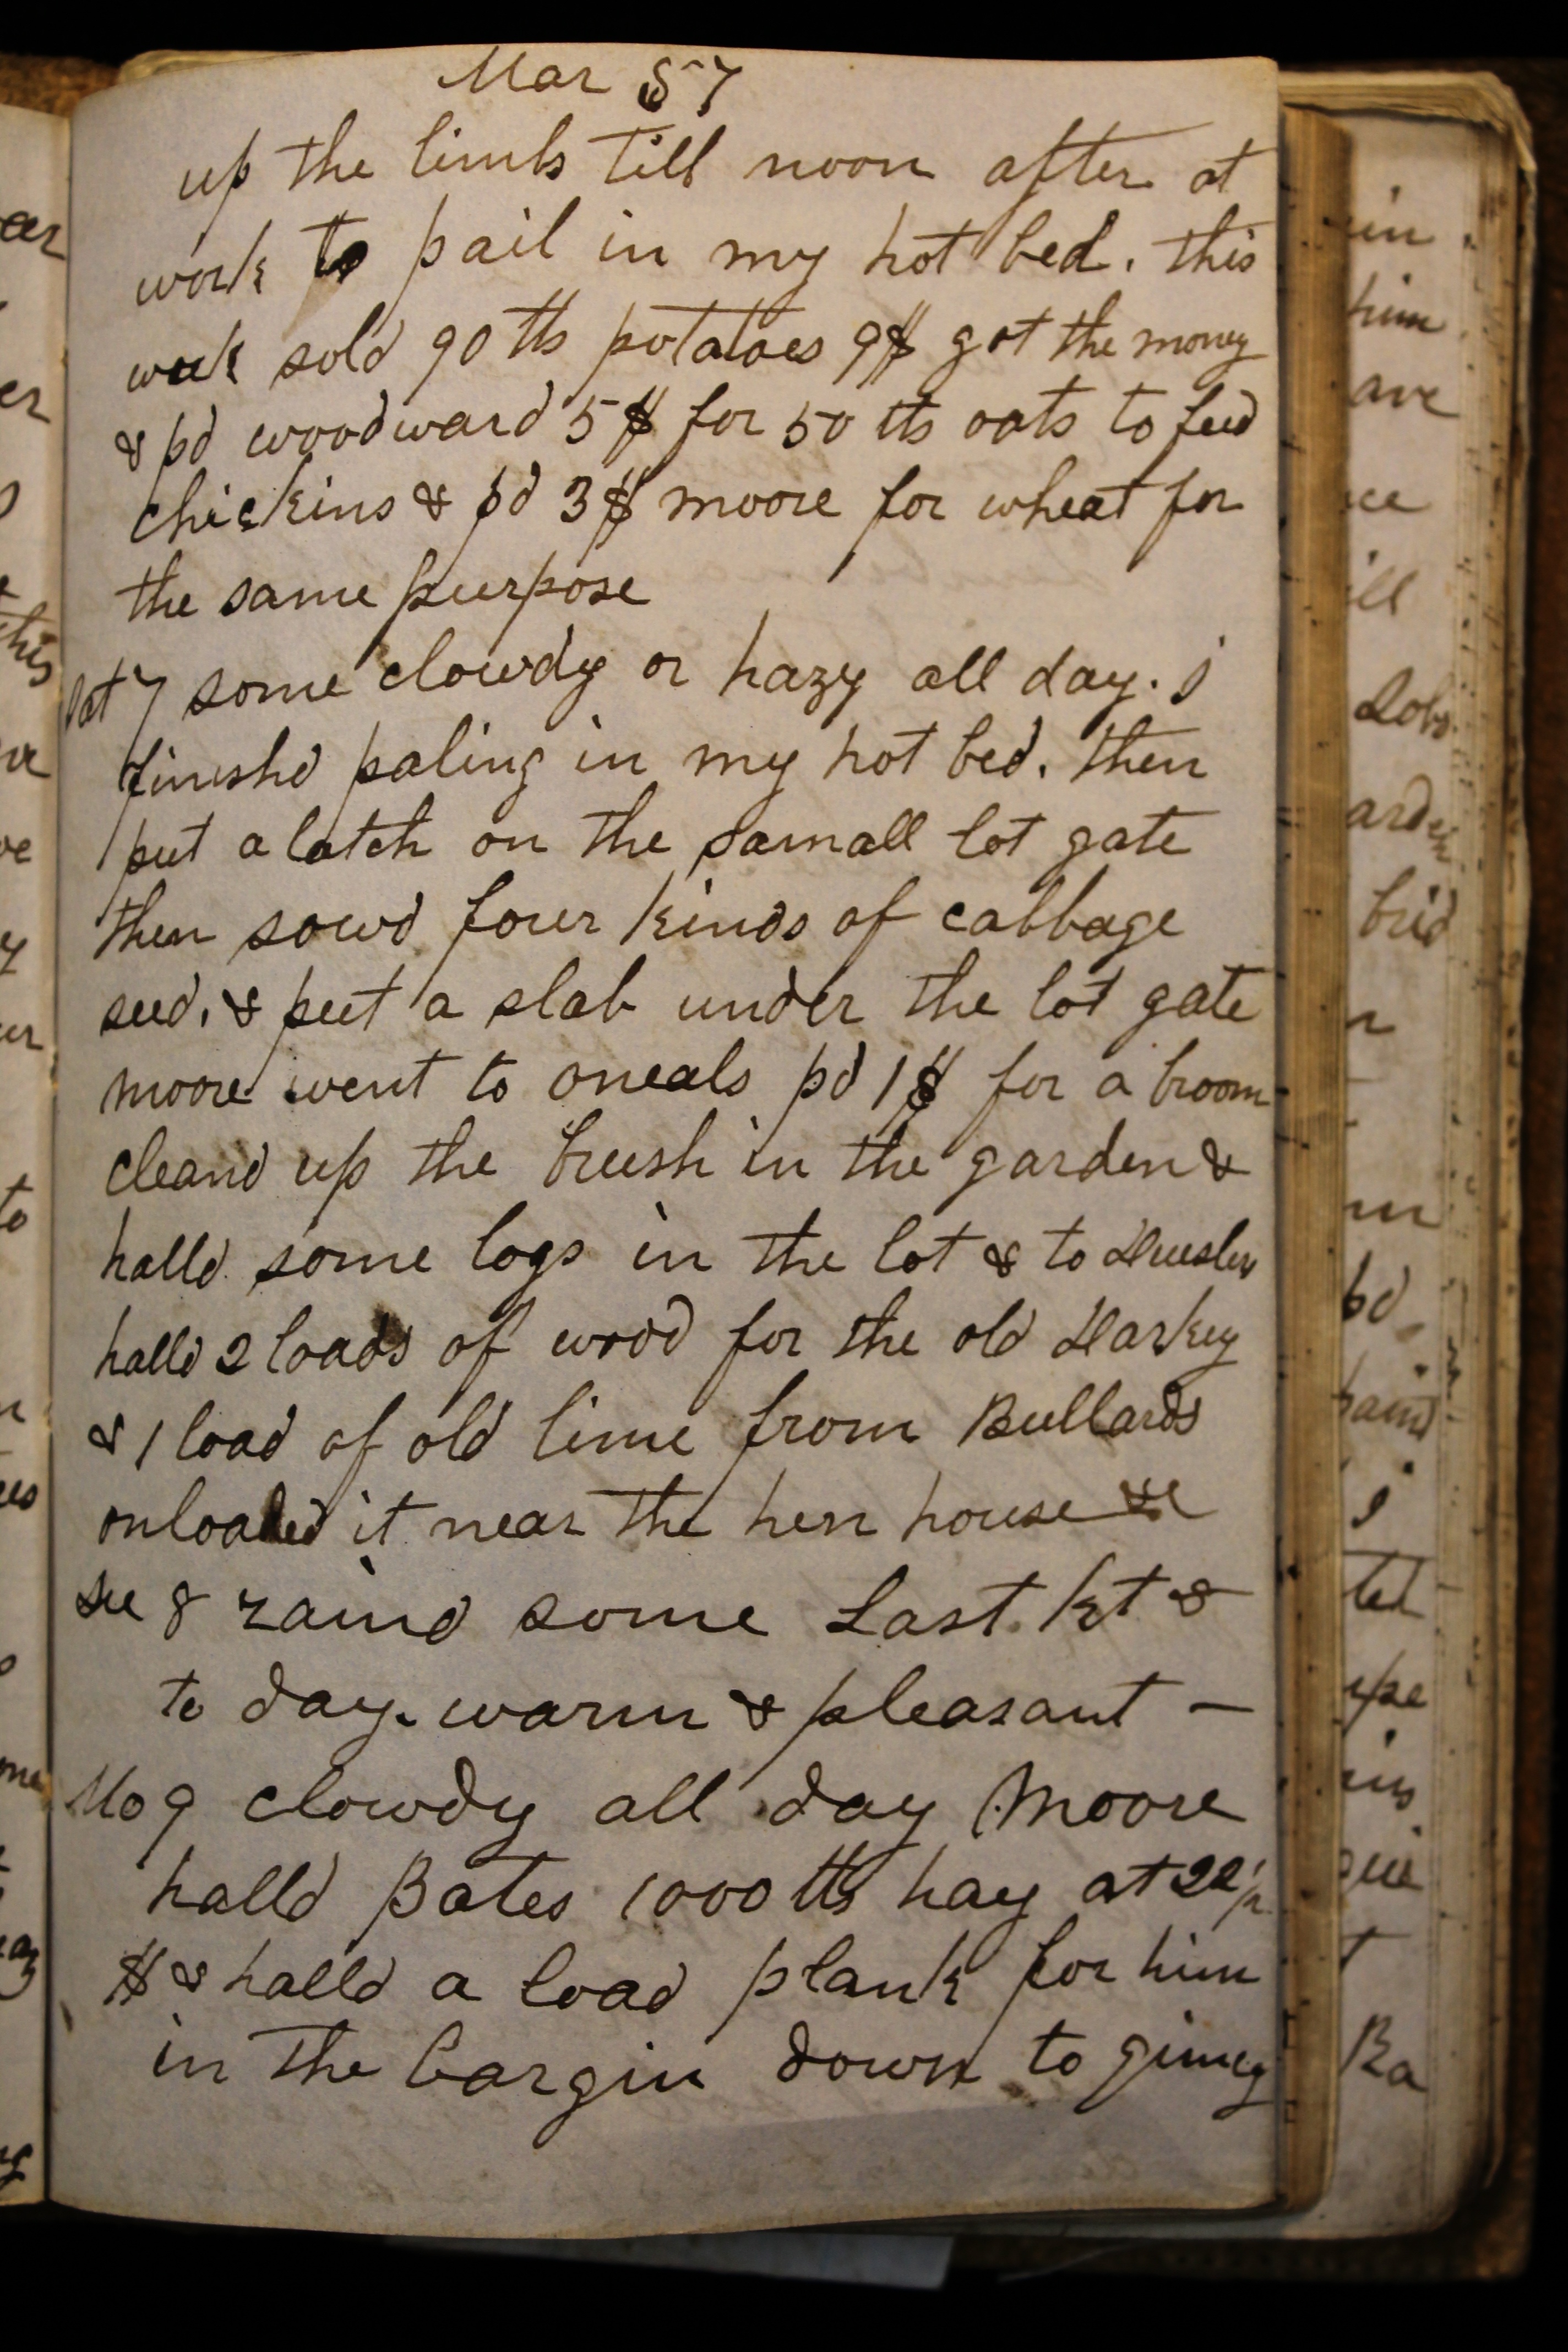 Mar 57
up the limbs till noon after at
work to pail in my hot bed. this
week sold 90 lbs potatoes 9$ got the money
& pd woodward 5$ for 50 lbs oats to feed
chickins & pd 3$ moore for wheat for
the same purpose
Sat 7 some clowdy or hazy all day. I
finishd paling in my hot bed. then
put a latch on the samall lot gate
then sowd four kinds of cabbage
seed. & put a slab under the lot gate
moore went to oneals pd 1$ for a broom
cleand up the brush in the garden &
halld some logs in the lot & to
halld 2 loads of wood for the old Harkey
& 1 load of old lime from Bullards
onloaded it near the hen house &c
Su 8 raind some Last Nt &
to day. warm & pleasant —
Mo 9 clowdy all day Moore
halld Bates 1000 lbs hay at 22
$ & halld a load plank for him
in the bargin down to gimey